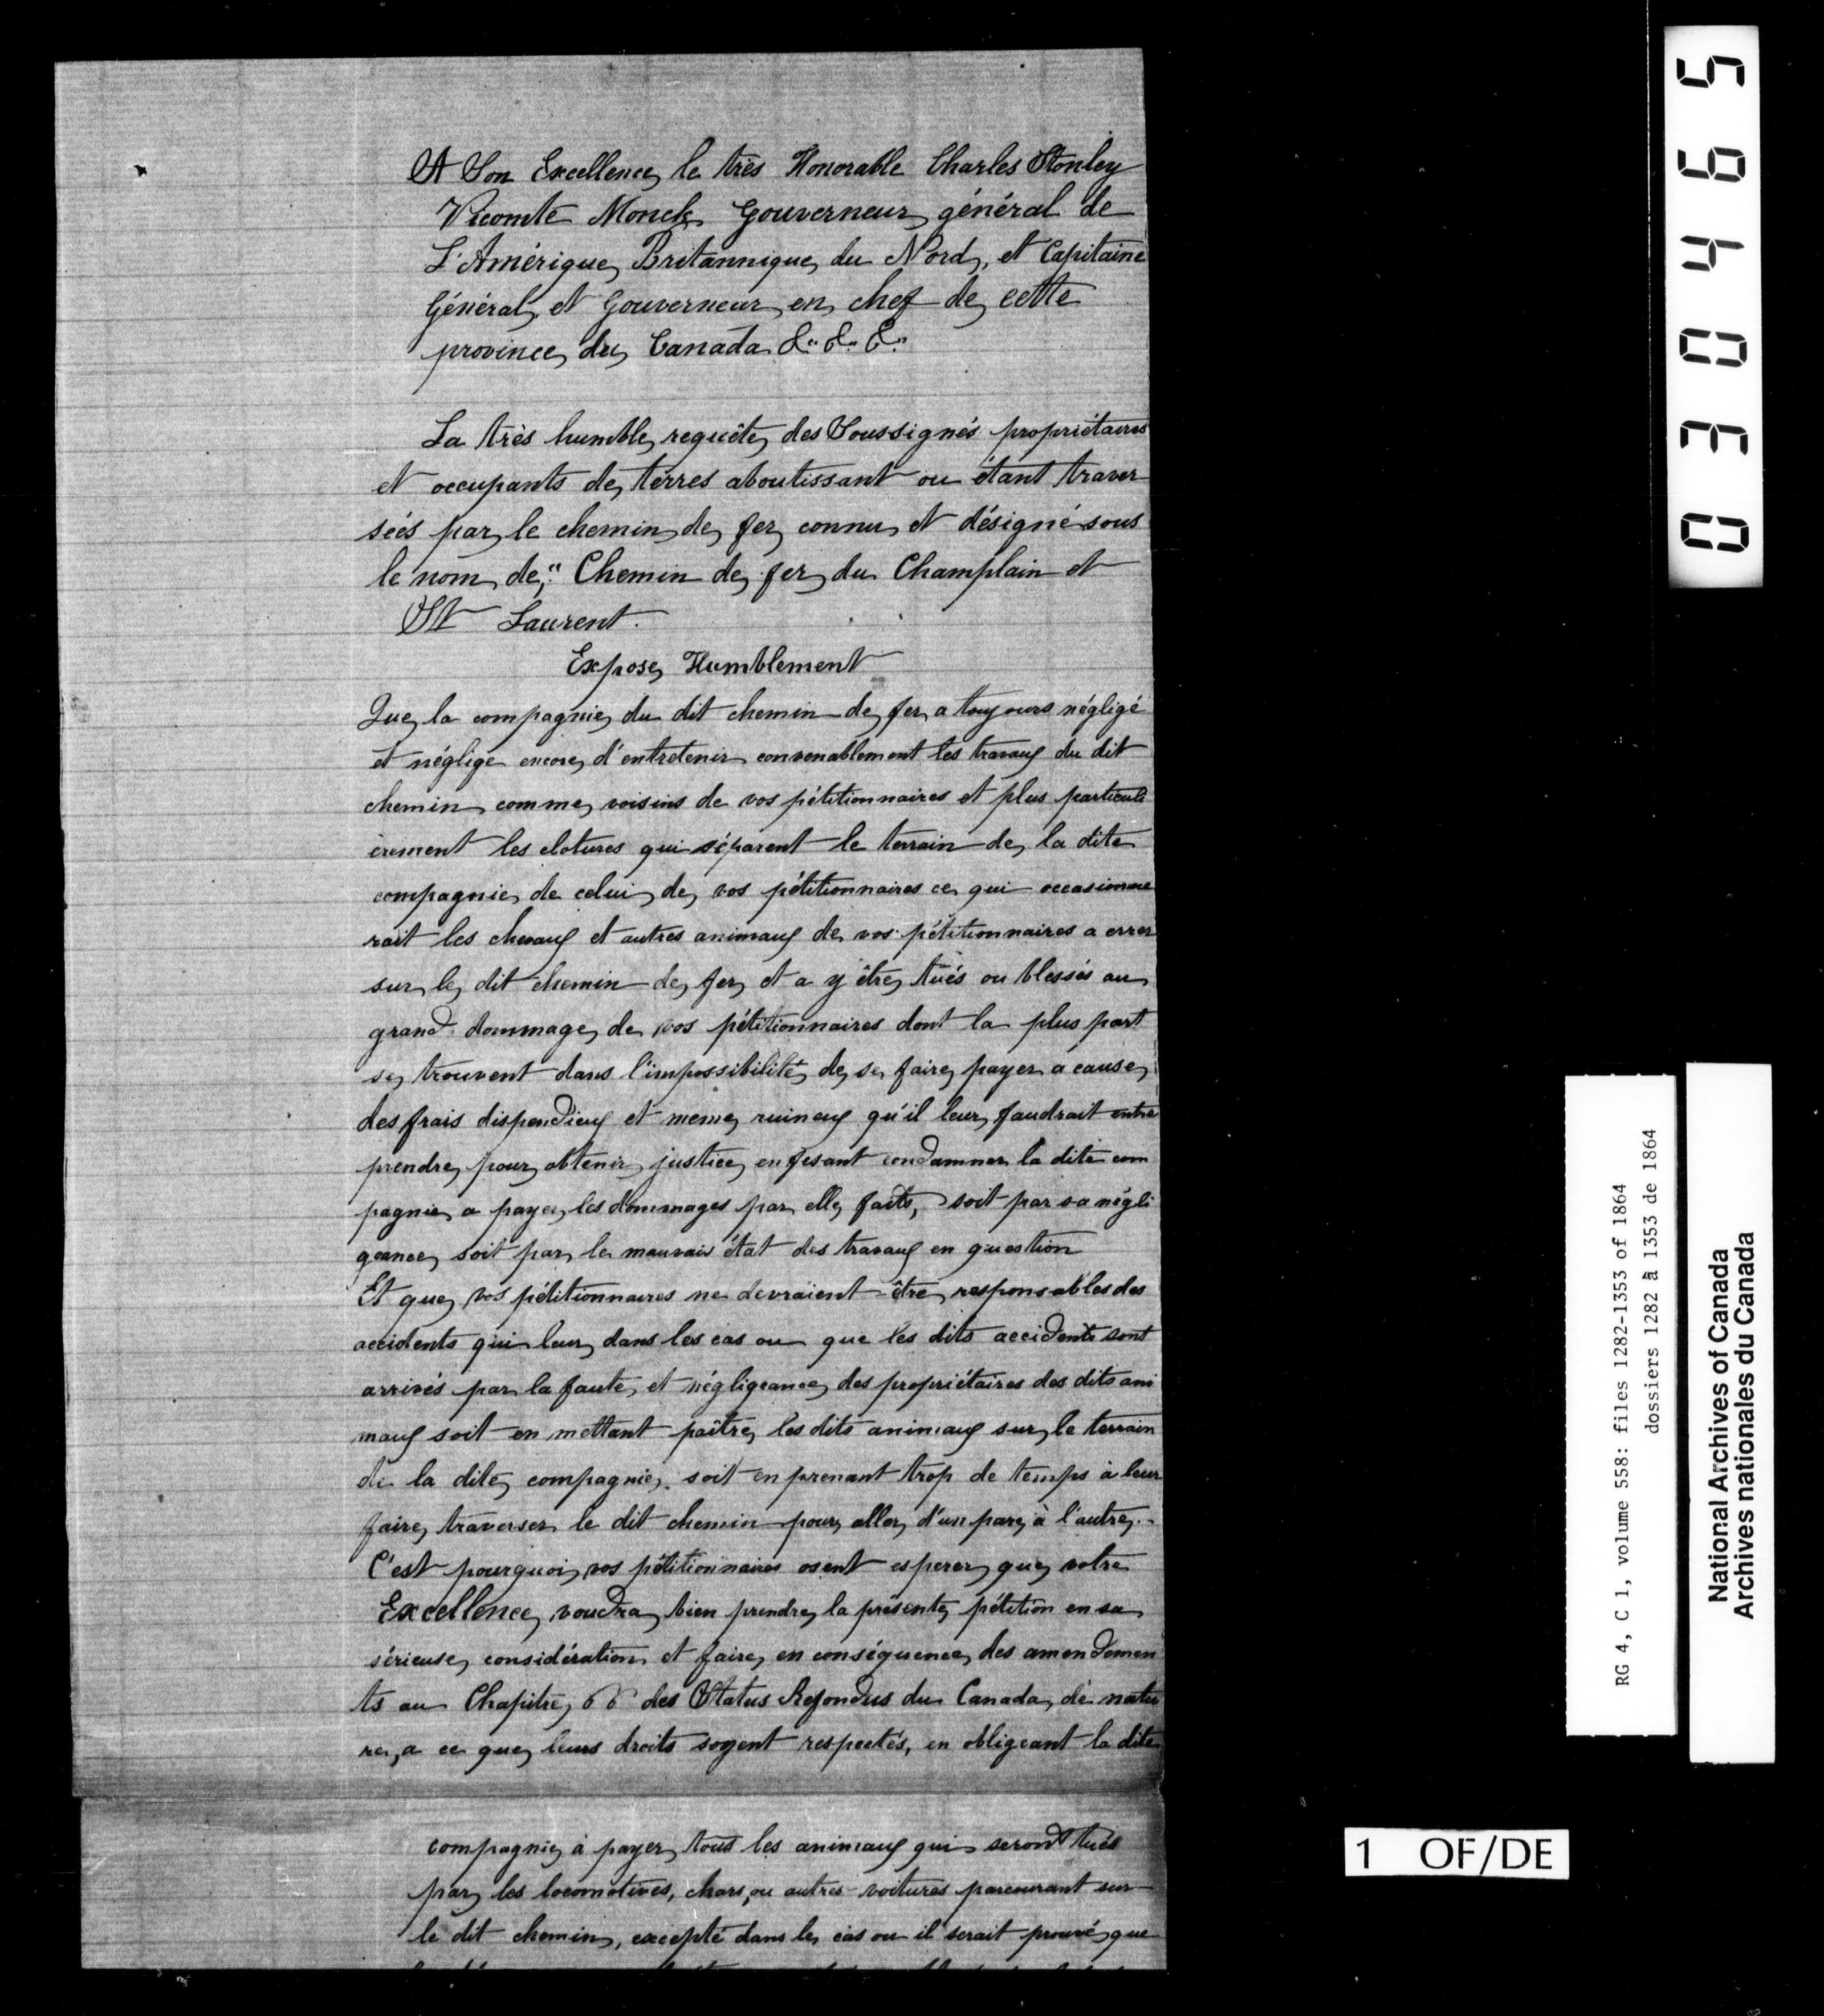 A Son Excellence le très Honorable Charles Stonley
Vicomte Monck Gouverneur général de
L'Amérique Britannique du Nord, et Capitaine
Général et Gouverneur en chef de cette
province du Canada &.. &.. &..
La très humble requête des Soussignés propriétaires
et occupants de terres aboutissant ou étant traver
seés par le chemin de fer connu et désigné sous
le nom de," Chemin de fer du Champlain et
St Laurent.
Expose Humblement
Que la compagnie du dit chemin de fer a toujours négligé
et néglige encore d'entretenir convenablement les travaux du dit
chemin comme voisins de vos pétitionnaires et plus particuli
èrement les clotures qui séparent le terrain de la dite
compagnie de celui de vos pétitionnaires ce qui occasionne
rait les chevaux et autres animaux de vos pétitionnaires a errer
sur le dit chemin de fer et a y être tués ou blessés au
grand dommage de vos pétitionnaires dont la plus part
se trouvent dans l'impossibilité de se faire payer a cause
des frais dispendieux et meme ruineux qu'il leur faudrait entre
prendre pour obtenir justice en fesant condamner la dite com
pagnie a payer les dommages par elle faits, soit par sa négli
geance soit par le mauvais état des travaux en question
Et que vos pétitionnaires ne devraient être responsables des
accidents qui leur dans les cas ou que les dits accidents sont
arrivés par la faute et négligeance des propriétaires des dits ani
maux soit en mettant paître les dits animaux sur le terrain
de la dite compagnie, soit en prenant trop de temps à leur
faire traverser le dit chemin pour aller d'un parc à l'autre.
C'est pourquoi vos pétitionnaires osent esperer que votre
Excellence voudra bien prendre la présente pétition en sa
sérieuse considération et faire en conséquence des amendemen
ts au Chapitre des Status Refondus du Canada, de natu
re, a ce que leurs droits soyent respectés, en obligeant la dite
compagnie à payer tous les animaux qui seront tués
par les locomotives, chars, ou autres voitures parcourant sur
le dit chemin, excepté dans le cas ou il serait prouvé que
030465
RG 4, C 1, volume 558: files 1282-1353 of 1864
dossiers 1282 à 1353 de 1864
National Archives of Canada
Archives nationales du Canada
1 OF/DE